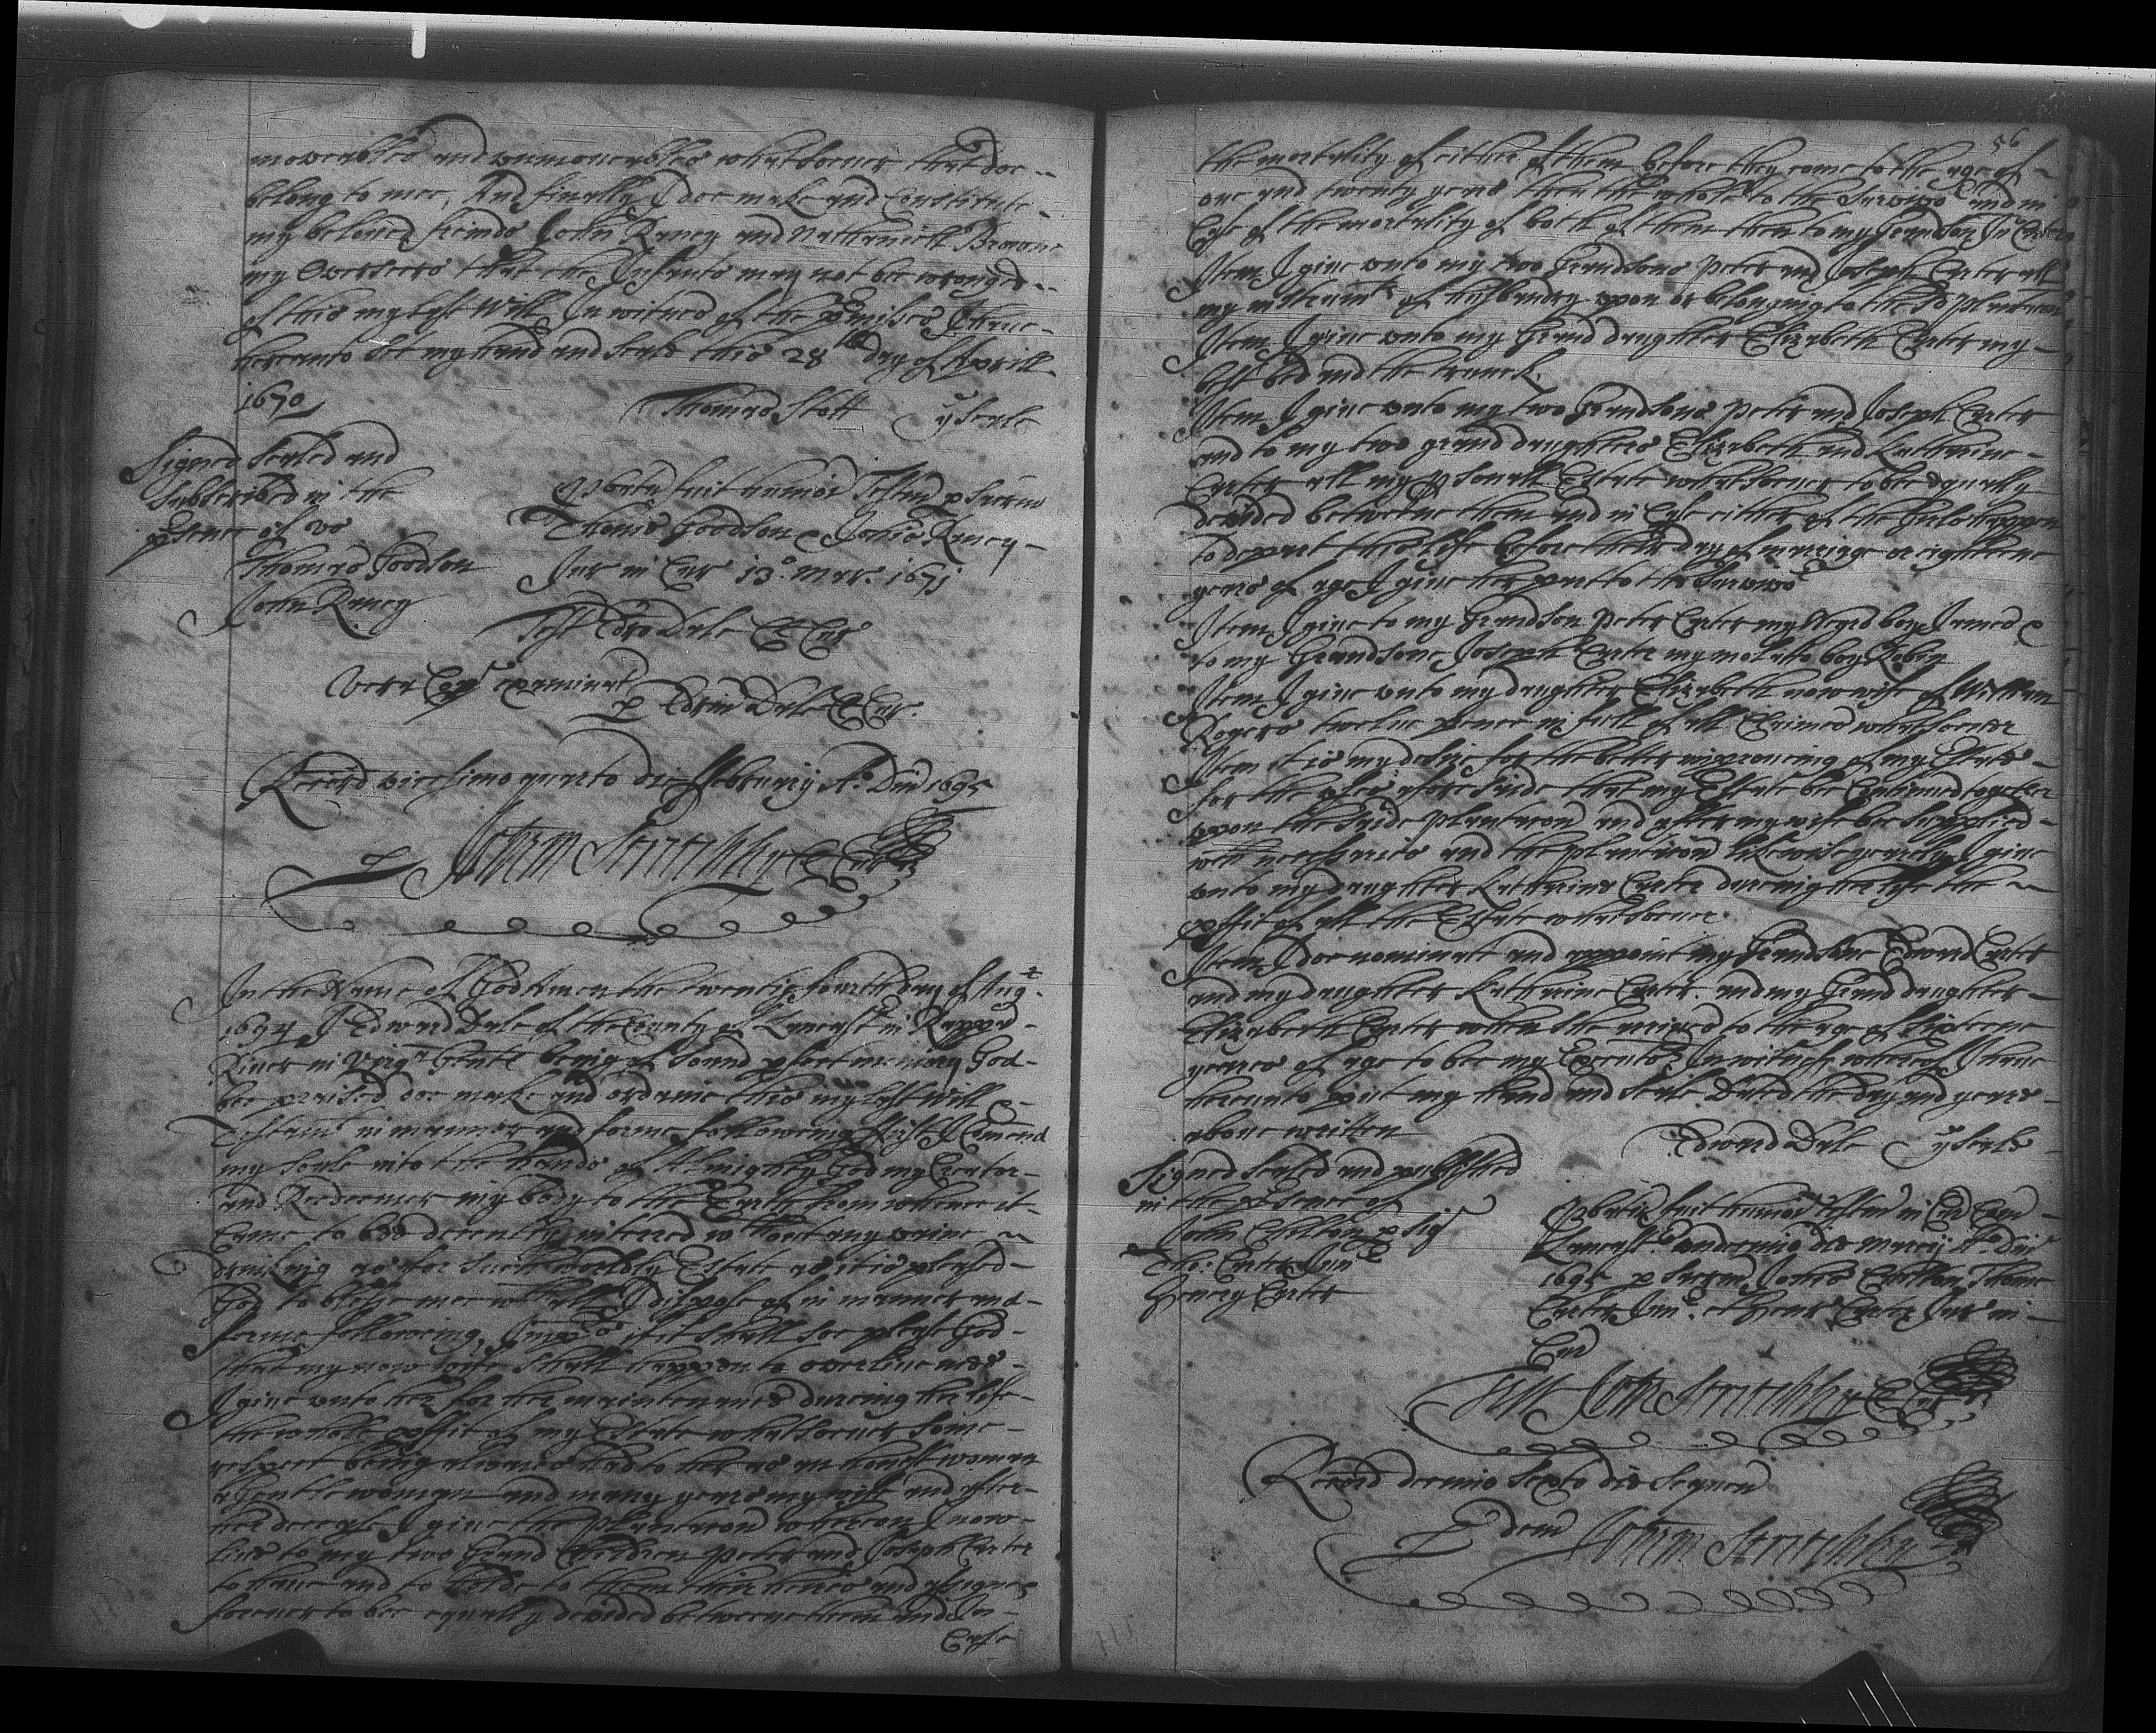 moveables and unmoveables whatsoever that doe
belong to mee, And finally I doe make and Constitute
my beloved freinds John Raney and Nathaniell Browne
my Overseers that the Infants may not bee wronged
of this my last Will In witnes of the pmises I have
hereunto set my hand and seale this 28th day of Aprill
1670
Thomas Stott ye seale
Signed sealed and
Subscribed in the
psence of us
Thomas Goodson
John Raney
Probatu fuit humoi Testum p Sacrm
Thome Goodson & Johis Raney
Jur in Cur 13o. Mar. 1671
Test Edro Dale Cl Cur
Vera Copa examinat
p Edrm Dale Cl Cur.
Record vicesimo quarto die ffebruarij Ao. Dni 1695
p Johem Stretchley Cl Cur
In the Name of God Amen the twentie fourth day of Aug
1694 I Edward Dale of the County of Lancastr in Rappa
River in Virga Gentl being of sound pfect memory God
bee praised doe make and ordaine this my last will &
Testamt in manner and forme following first I Comend
my soule into the hands of Almighty God my Creator
and Redeemer my body to the Earth from whence it
Came to bee decently interred wthout any wine
drinking as for such worldly Estate as it is pleased
God to blesse mee wth all I dispose of in manner and
forme following, Imprs if it shall soe please God
that my now wife shall happen to overlive mee
I give unto her for her maintenance dureing her life
the whole pffit of my Estate whatsoever some
respect being alwaies had to her as an honest woman
a Gentlewoman and many years my wife and after
her decease I give the plantacon whereon I now
live to my two Grand Children Peter and Joseph Carter
to have and to hold to them their heires and assignes
forever to bee equally devided betweene them and In
Case
56
the mortality of either of them before they come to the age of
one and twenty years then the whole to the Survivor and in
Case of the mortality of both of them then to my Grandson Jn Carter
Item I give unto my two Grandsons Peter and Joseph Carter all
my instrumts of husbandry upon or belonging to the sd plantacon
Item I give unto my Grand daughter Elizabeth Carter my
best bed and the trunck
Item I give unto my two Grandsons Peter and Joseph Carter
and to my two grand daughters Elizabeth and Katherine
Carter all my psonall Estate whatsoever to bee Equally
devided betweene them and in Case either of the Girls happen
to depart this life before their day of marriage or eighteene
years of age I give her part to the Survivor
Item I give to my Grandson Peter Carter my Negro boy Jamed &
to my Grandsone Joseph Carter my molatto boy Robin
Item I give unto my daughter Elizabeth now wife of William
Rogers twelve pence in full of all Claimes whatsoever
Item it is my desire for the better improveing of my Estate
for the uses aforesaide that my Estate bee Continued together
upon the saide plantacon and after my wife bee supplied
with necessaries and the plantacon likewise yearely I give
unto my daughter Katherine Carter dureing her life the
pffit of all the Estate whatsoever
Item I doe nominate and appoint my Grandsone Edward Carter
and my daughter Katherine Carter. and my Grand daughter
Elizabeth Carter when she arrives to the age of sixteene
yeares of age to bee my Executors In witness whereof I have
hereunto put my hand and seale Dated the day and yeare
above written
Edward Dale ye seale
Signed sealed and published
in the psence of
John Chilton p sig
Tho: Carter Junr
Henry Carter
Probatu fuit humoi testum in Cur Com
Lancastr. undecimo die Marcij Ao. Dni
1695 p Sacrm Johis Chilton Thome
Carter Junr. et Henr Carter Jur in
Cur
Test John Stretchley Cl Cur
Record decimo sexto die Sequen
p Eundem Johem Stretchley